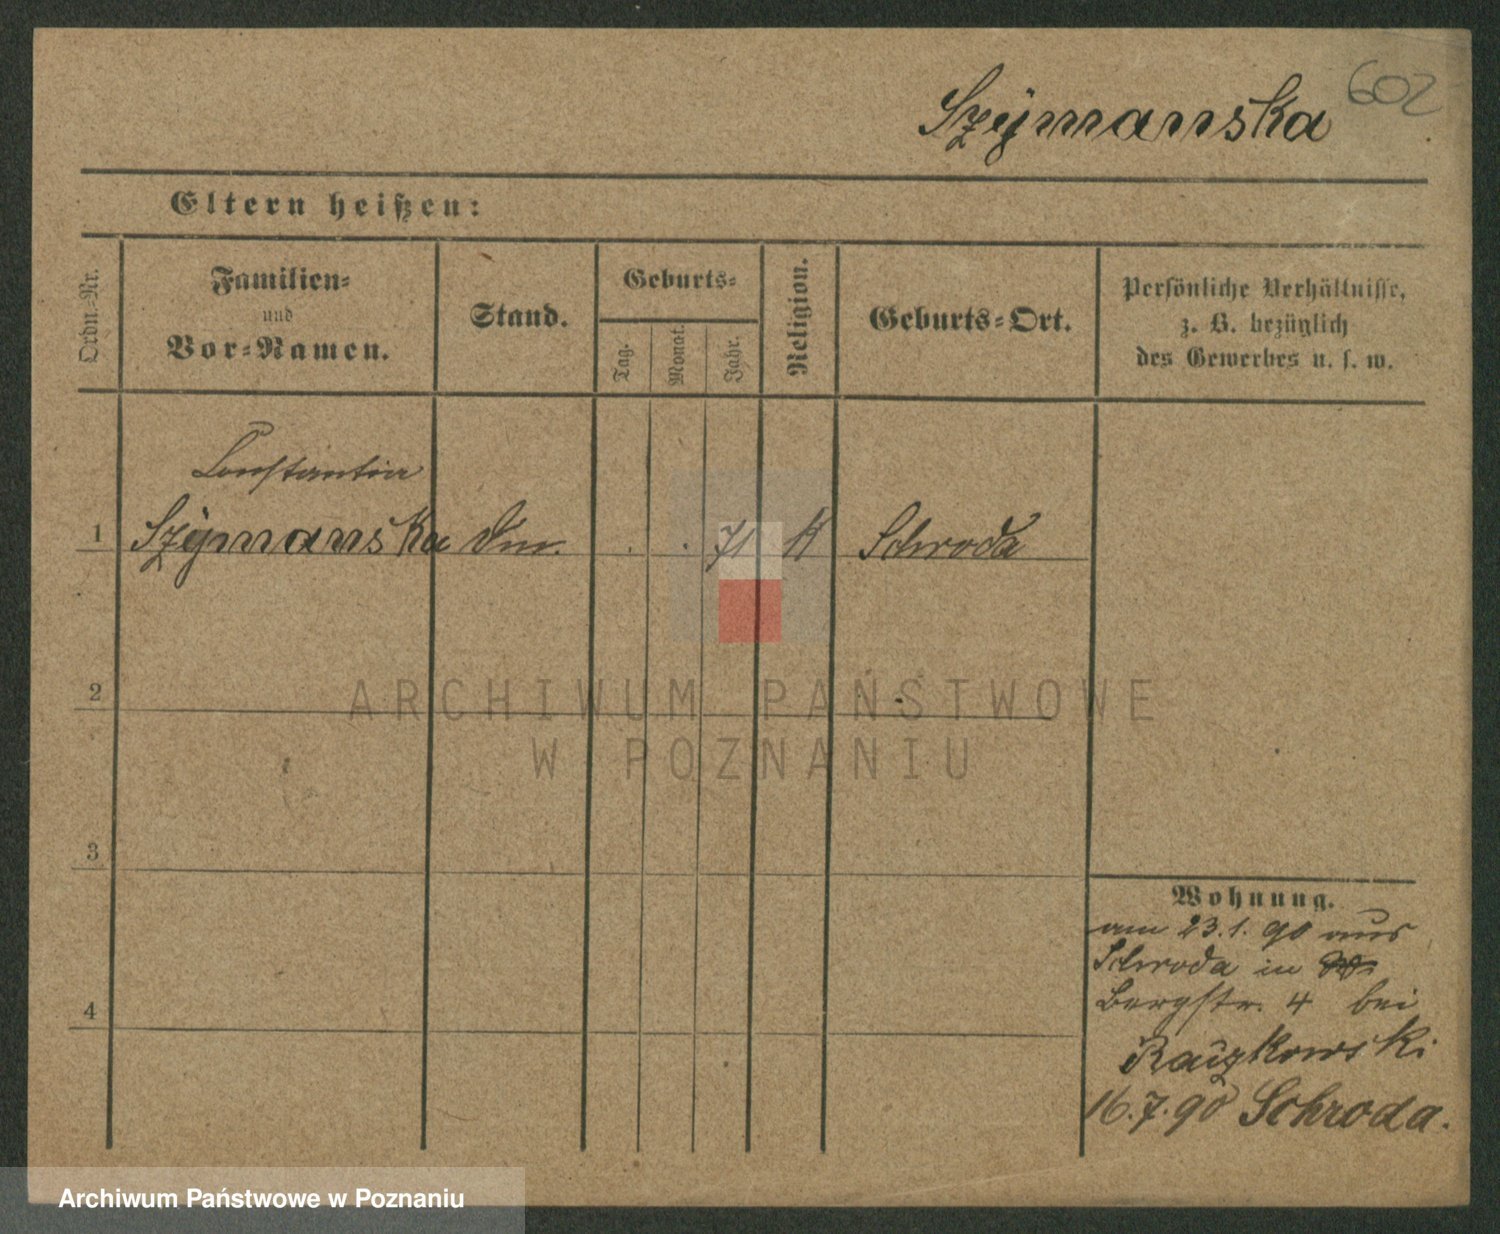 602
Szymanska
Eltern heißen:
Ordn.-Nr.
Familien-
und
Vor-Namen.
Stand.
Geburts-
Tag.
Monat.
Jahr.
Religion.
Geburts-Ort.
Persönliche Verhältnisse,
z. B. bezüglich
des Gewerbes u. s. w.
Constantia
1 Szymanska 71 K Schroda
2
3
4
Wohnung.
am 23.1.90 aus
Schroda in
Bergstr. 4 bei
16.7.90 Schroda.
ARCHIWUM PAŃSTWOWE
W POZNANIU
Archiwum Państwowe w Poznaniu